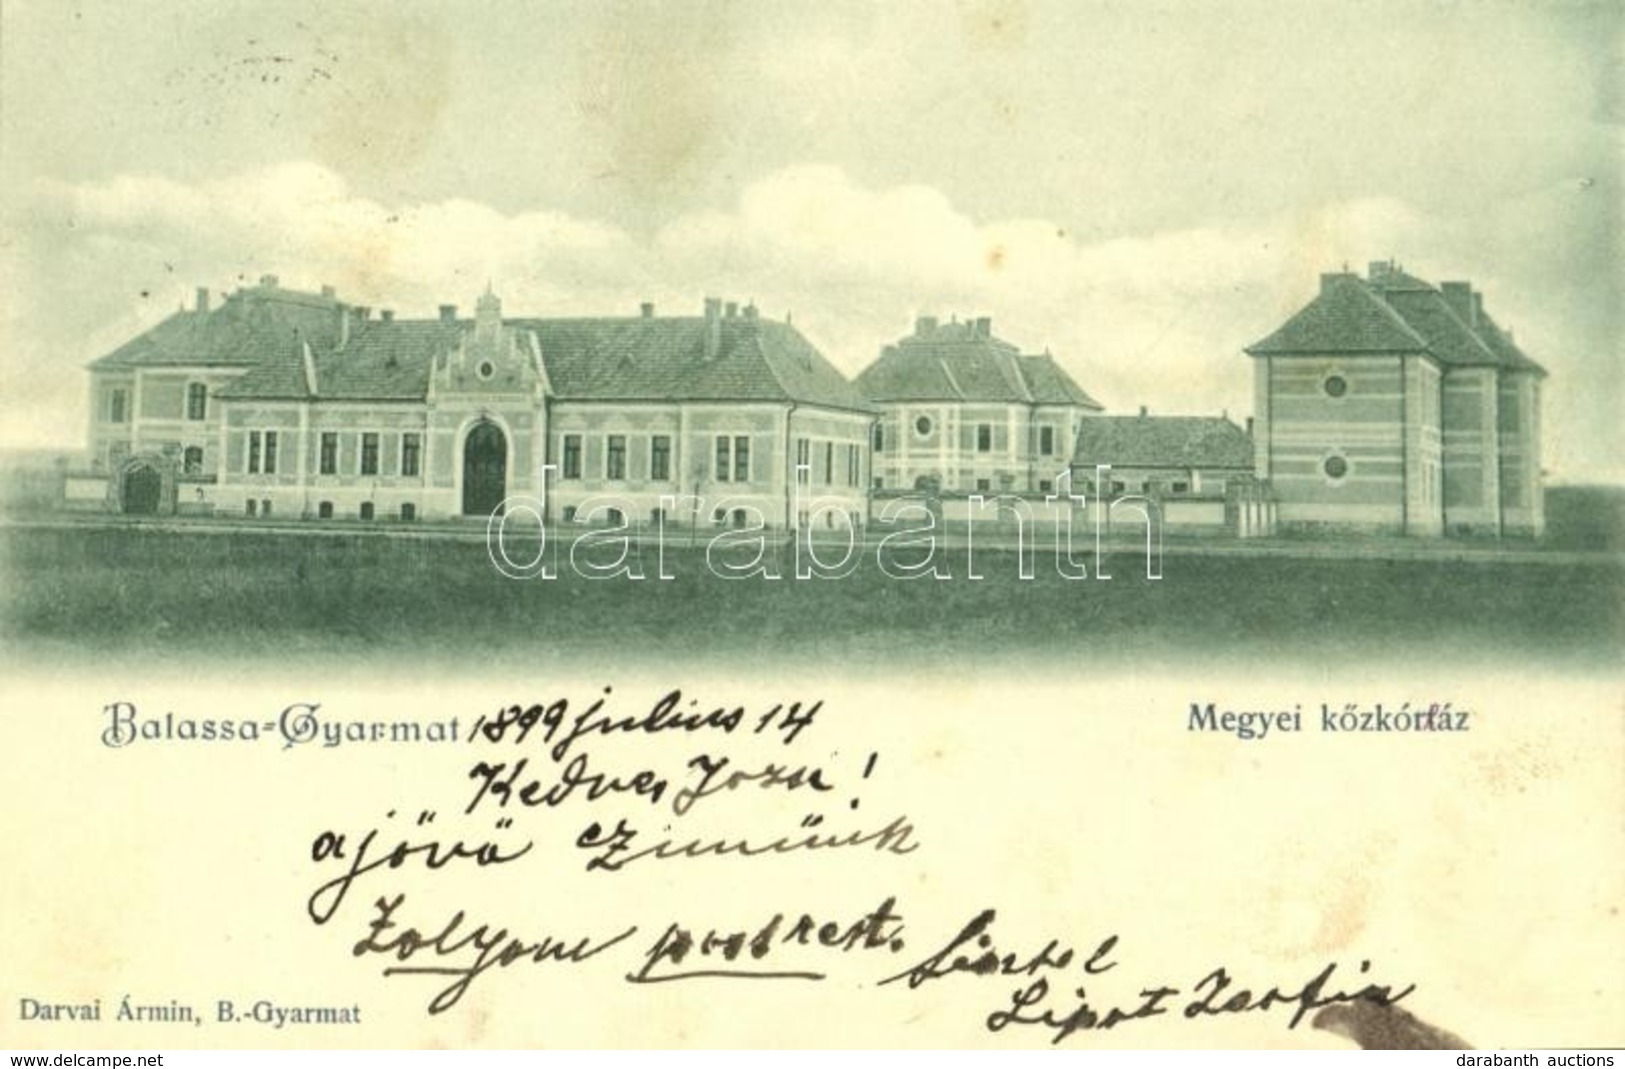 darabanth
Balassa-Gyarmat 1899 július 14
Megyei kőzkórház
Kedves Józsi!
a jövő czimünk
Zolyom post rest.
Lipot Zsofia
Darvai Ármin, B.-Gyarmat
www.delcampe.net
darabanth auctions